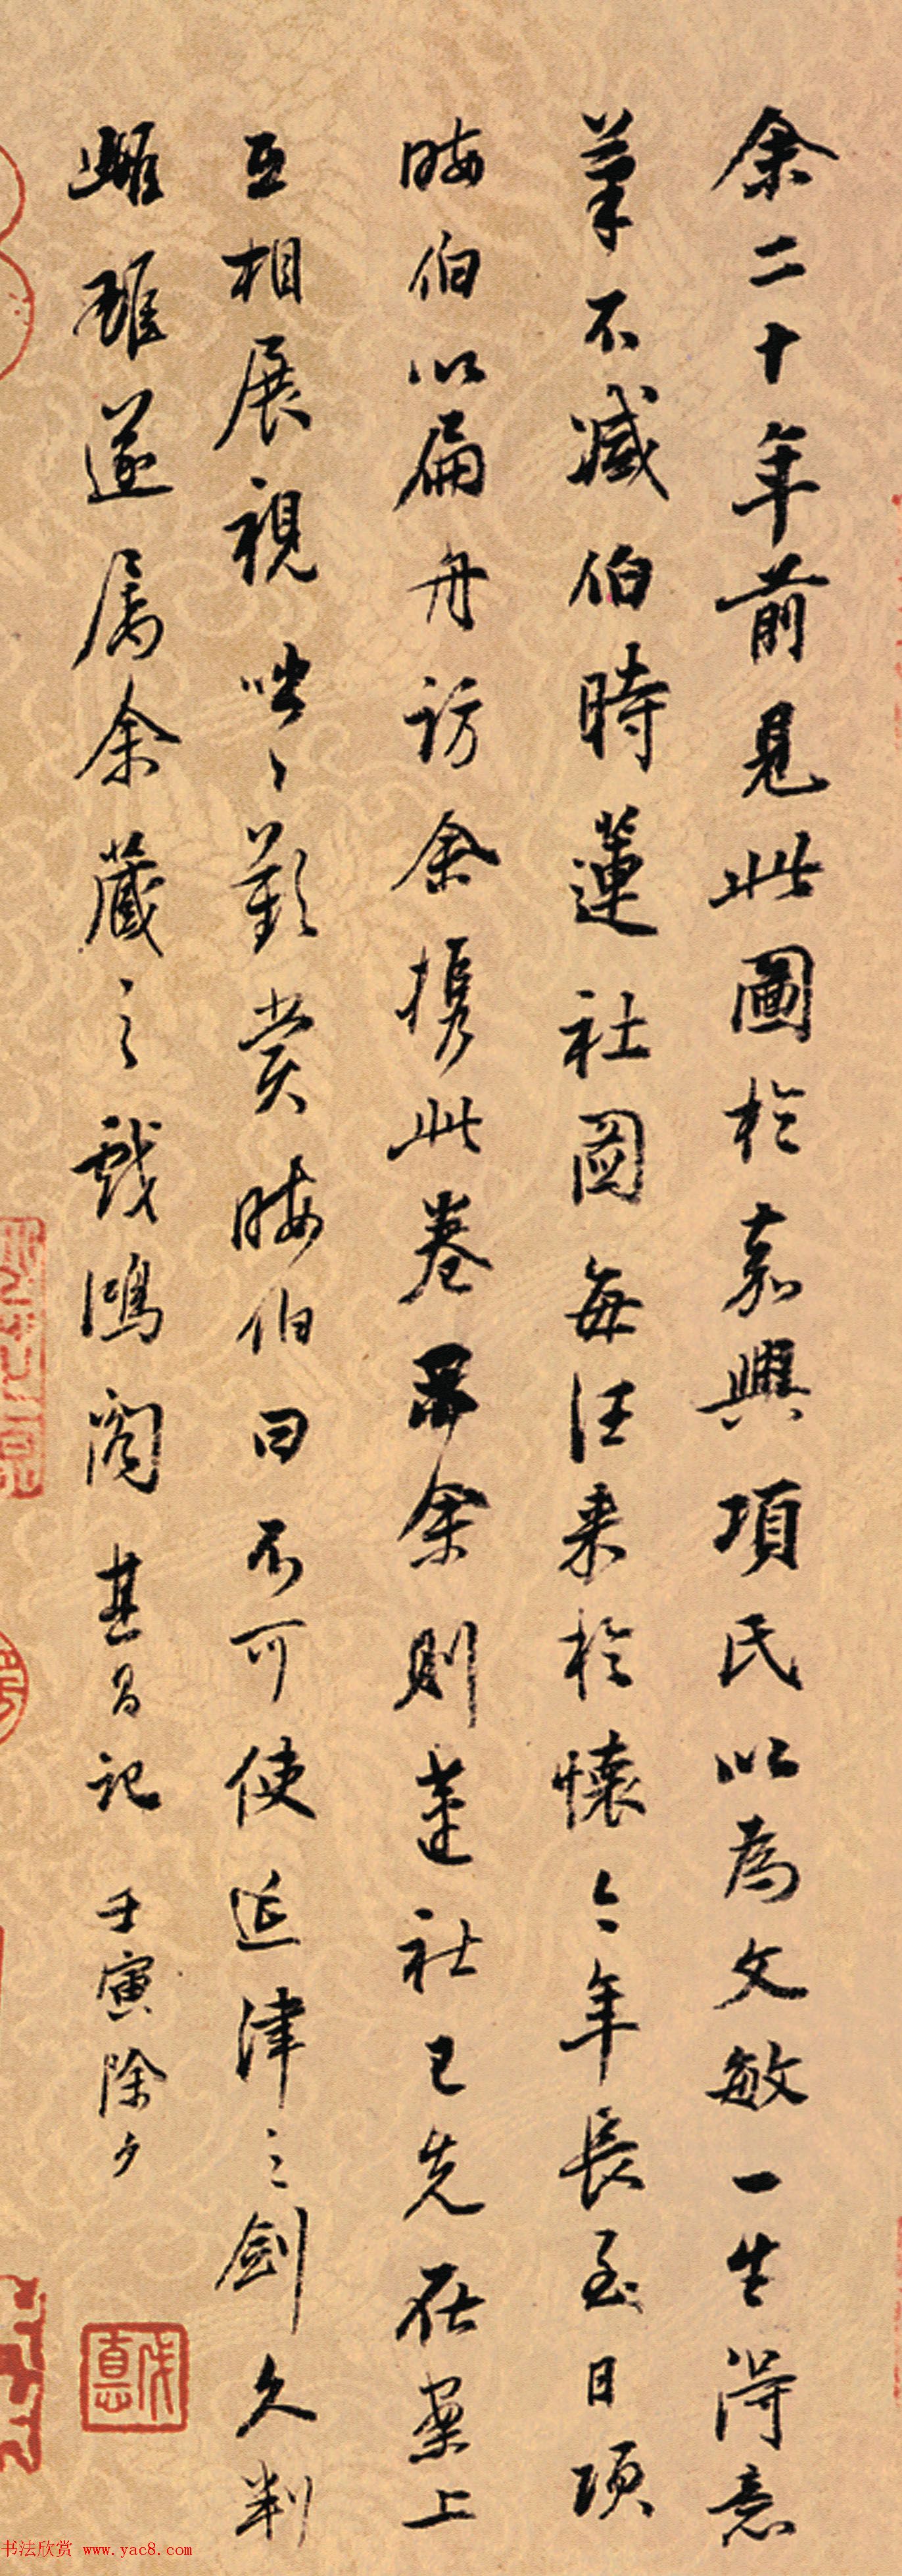 余二十年前見此圖於嘉興項氏以為文敏一生得意
筆不減伯時蓮社圖每往来於懷今年長至日項
晦伯以扁舟訪余携此卷示余則蓮社已先在案上
互相展視咄々歎賞晦伯曰不可使延津之剑久判
雌雄遂属余藏之戲鴻閣其昌記壬寅除夕
书法欣赏 www.yac8.com